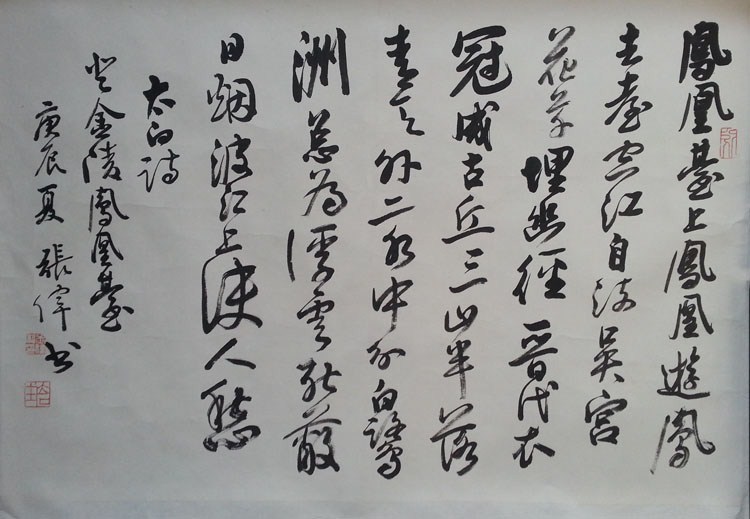 鳳凰臺上鳳凰遊鳳
去臺空江自流吳宮
花草埋幽徑晉代衣
冠成古丘三山半落
青天外二水中分白鷺
洲總為浮雲能蔽
日烟波江上使人愁
太白詩
登金陵鳳凰臺
庚辰夏 張偉書